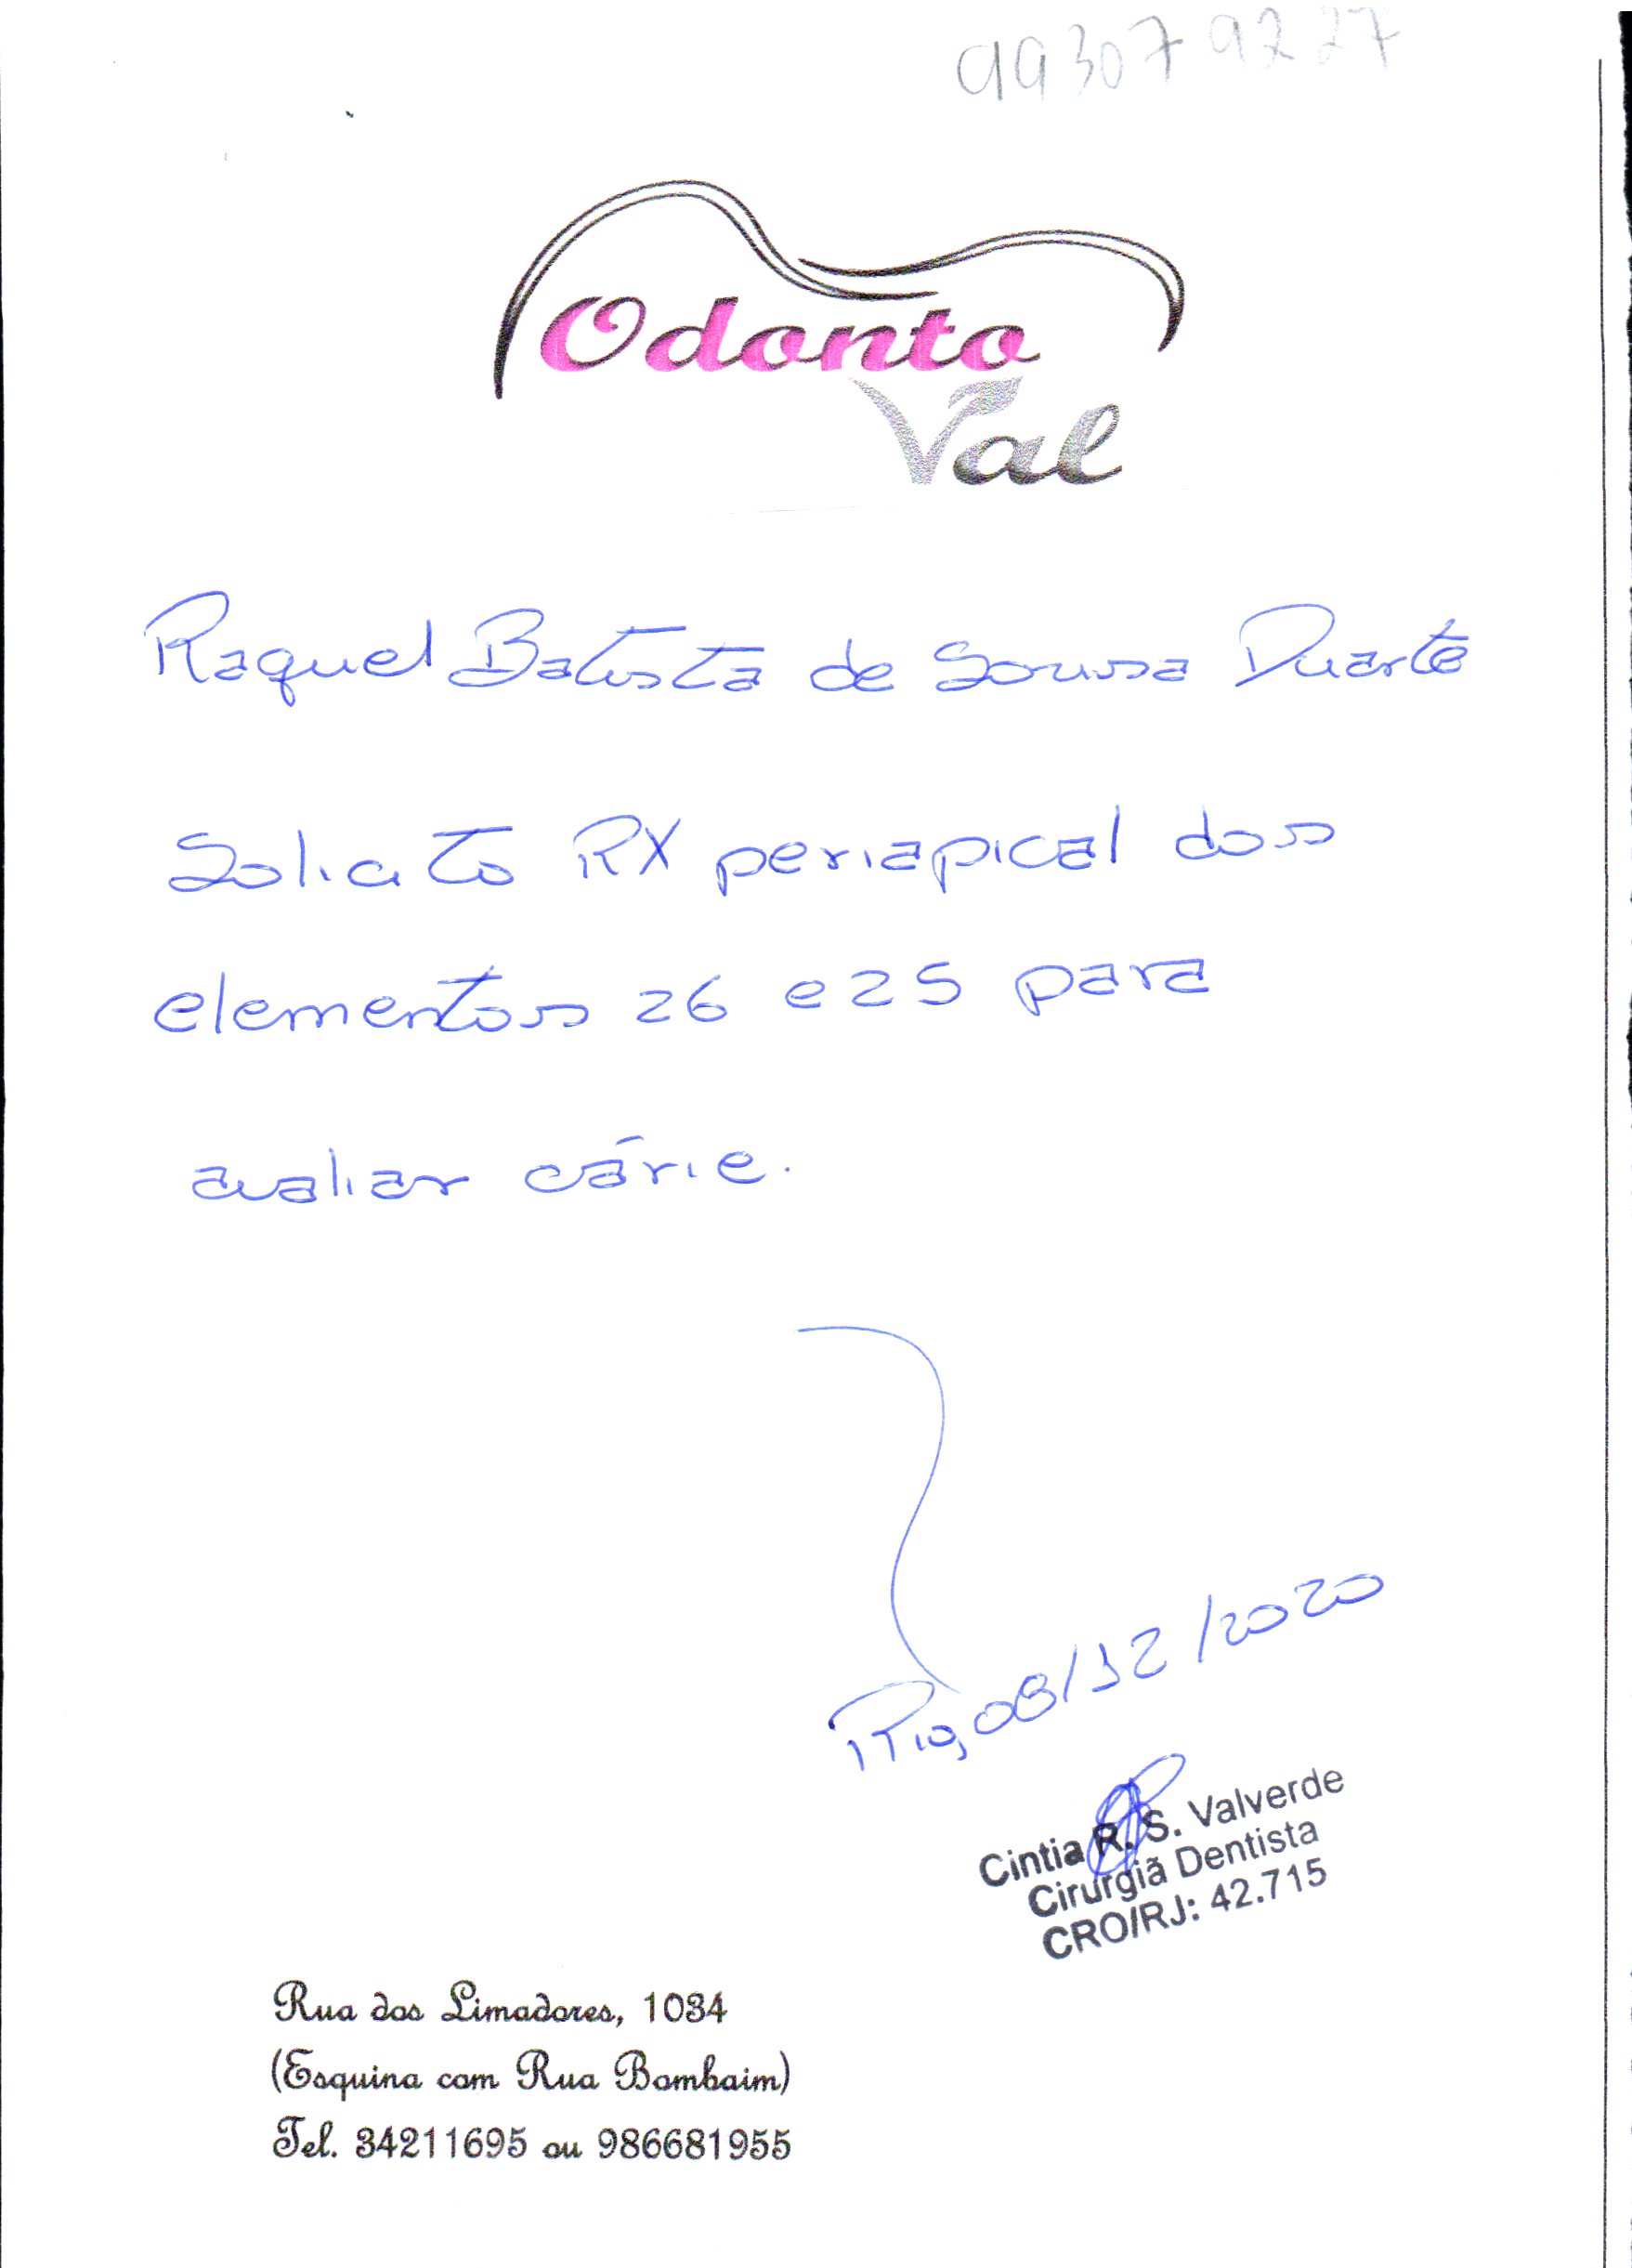 993079227
Odonto
Val
Raquel Batista de Sousa Duarte
Solicito RX periapical dos
elementos 26 e 25 para
avaliar cárie.
Rio, 08/12/2020
Cintia R. S. Valverde
Cirurgiã Dentista
CRO/RJ: 42.715
Rua dos Limadores, 1034
(Esquina com Rua Bombaim)
Tel. 34211695 ou 986681955